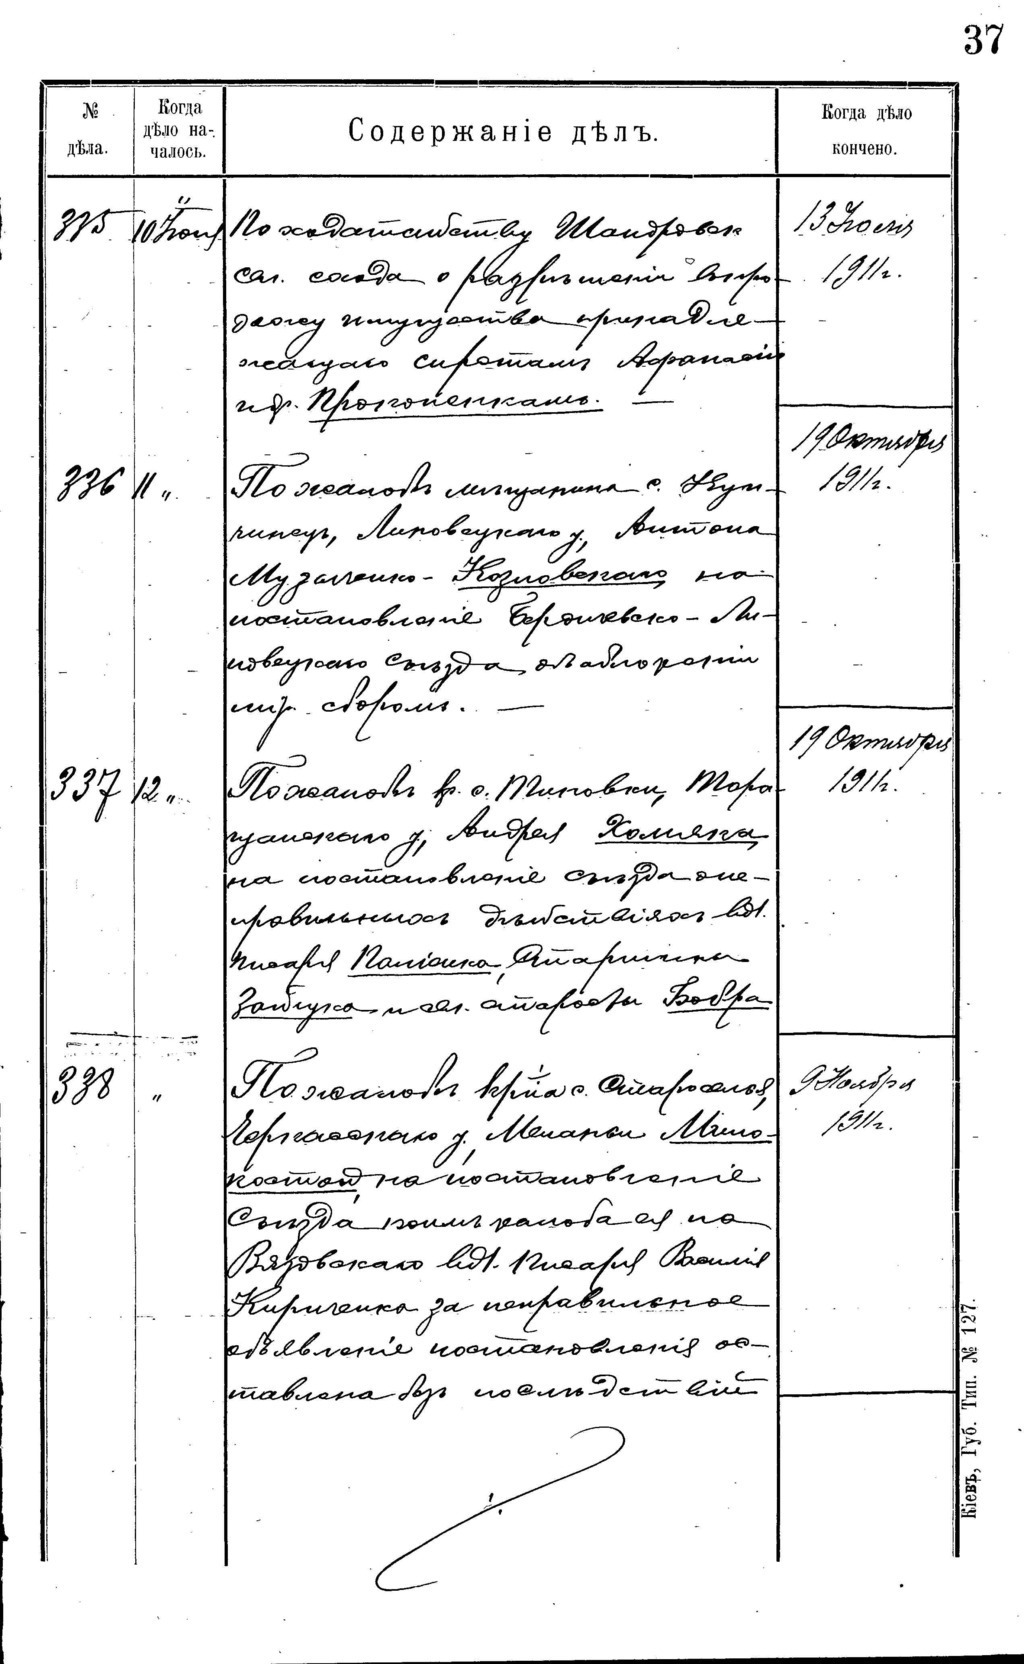 37
№ дѣла.
Когда дѣло началось.
Содержаніе дѣлъ.
Когда дѣло кончено.
335 10 Іюня По ходатайству Шандровск 13 Іюля
сел. схода о разрѣшеніи 1911 г.
продажу имущества принадле-
жащаго сиротамъ Афанасію
и др. Прокопенкамъ. —
19 Октября
336 11 „ По жалобѣ мѣщанина с. Кун- 1911 г.
чинецъ, Липовецкаго у, Антона
Музаленко-Козловскаго на
постановленіе Бердичевско-Ли-
повецкаго Съѣзда объ обложеніи
мір. сборомъ. —
19 Октября
337 12 „ По жалобѣ кр. с. Тиновки, Тара 1911 г.
щанскаго у, Андрея Хомяка,
на постановленіе съѣзда о не-
правильныхъ дѣйствіяхъ вол.
писаря Паліенко, Старшины
и сел. старосты Бобра
338 „ По жалобѣ кр-ки с. Староселья, 9 Ноября
Черкасскаго у. Меланьи 1911 г.
на постановленіе
Съѣзда коимъ жалоба ея на
Вязовскаго вол. писаря Василія
Кириченко за неправильное
объявленіе постановленія ос-
тавлена безъ послѣдствій
Кіевъ, Губ. Тип. № 127.